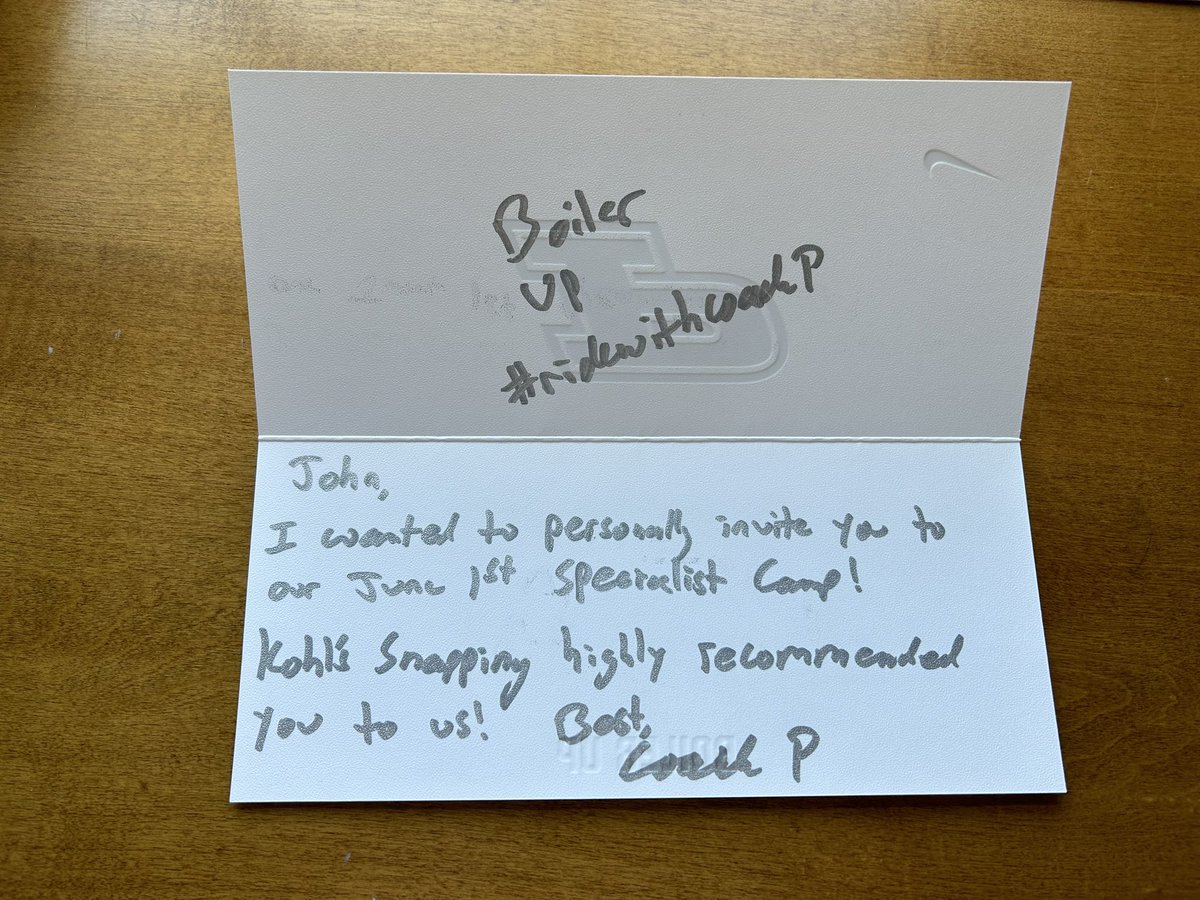 Boiler
UP
#ridewithcoachP
John,
I wanted to personally invite you to
our June 1st Specialist Camp!
Kohl's Snapping highly recommended
you to us! Best,
Coach P
BOILER UP